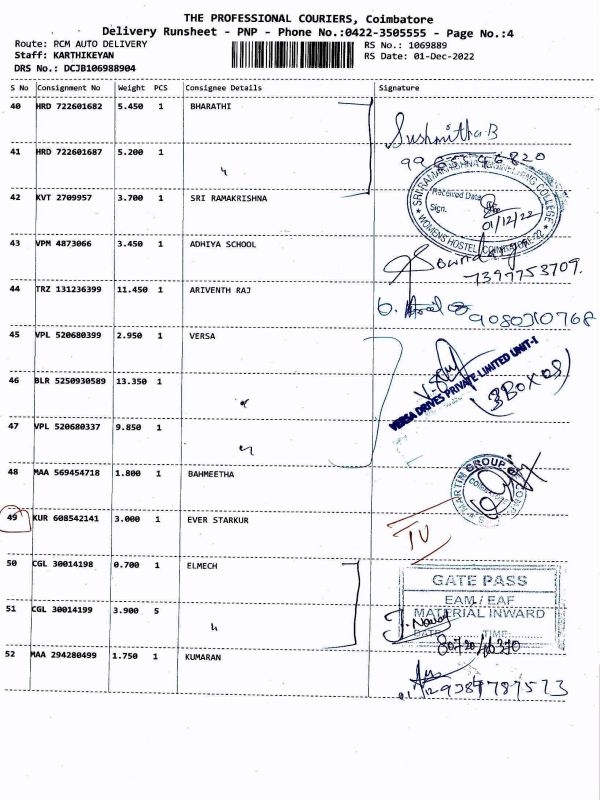 THE PROFESSIONAL COURIERS, Coimbatore
Delivery Runsheet - PNP - Phone No.:0422-3505555 - Page No.:4
Route: RCM AUTO DELIVERY
Staff: KARTHIKEYAN
DRS No.: DCJB106988904
RS No.: 1069889
RS Date: 01-Dec-2022
S No Consignment No Weight PCS Consignee Details Signature
40 HRD 722601682 5.450 1 BHARATHI
Sushmitha B
41 HRD 722601687 5.200 1 "
42 KVT 2709957 3.700 1 SRI RAMAKRISHNA
SRI RAMAKRISHNA ENGINEERING COLLEGE
Received Date
Sign.
01/12/22
WOMENS HOSTEL, COIMBATORE-22
43 VPM 4873066 3.450 1 ADHIYA SCHOOL
7397753709.
44 TRZ 131236399 11.450 1 ARIVENTH RAJ
9080310768
45 VPL 520680399 2.950 1 VERSA
VERSA DRIVES PRIVATE LIMITED UNIT-I
46 BLR 5250930589 13.350 1 "
(3 BOX 08)
47 VPL 520680337 9.850 1 "
48 MAA 569454718 1.800 1 BAHMEETHA
MARTIN GROUP OF
49 KUR 608542141 3.000 1 EVER STARKUR
IV
50 CGL 30014198 0.700 1 ELMECH
GATE PASS
EAM / EAF
MATERIAL INWARD
DATE TIME
51 CGL 30014199 3.900 5 "
52 MAA 294280499 1.750 1 KUMARAN